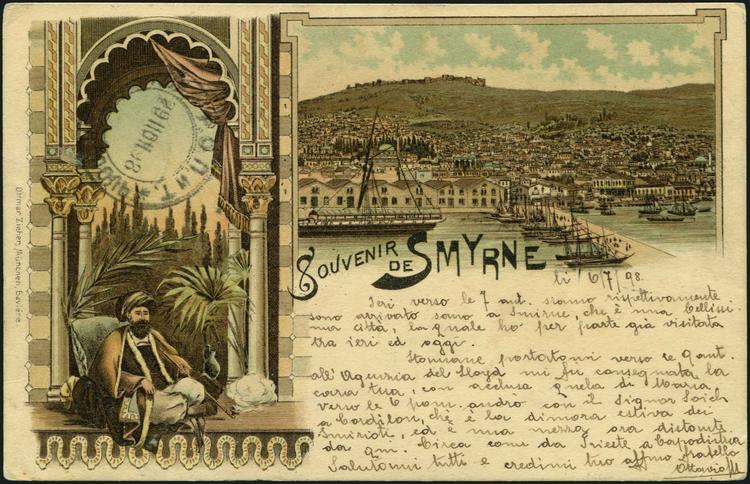 SOUVENIR DE SMYRNE
Ottmar Zieher, München, Bavière
li 6/7/98.
Ieri verso le 7 ant. siamo rispettivamente
sono arrivato sano a Smirne, che è una bellissi-
ma città, la quale ho per parte già visitata
tra ieri ed oggi.
Stamane portatomi verso le 9 ant.
all'Agenzia del Lloyd mi fu consegnata la
cara tua, con acclusa quella di Maria
verso le 6 pom. andrò con il Signor
a Cordilon, che è la dimora estiva dei
Smirioti, ed è una mezza ora distante
da qui. Circa come da Trieste a Capodistria
Salutami tutti e credimi tuo affmo fratello
Ottavio M